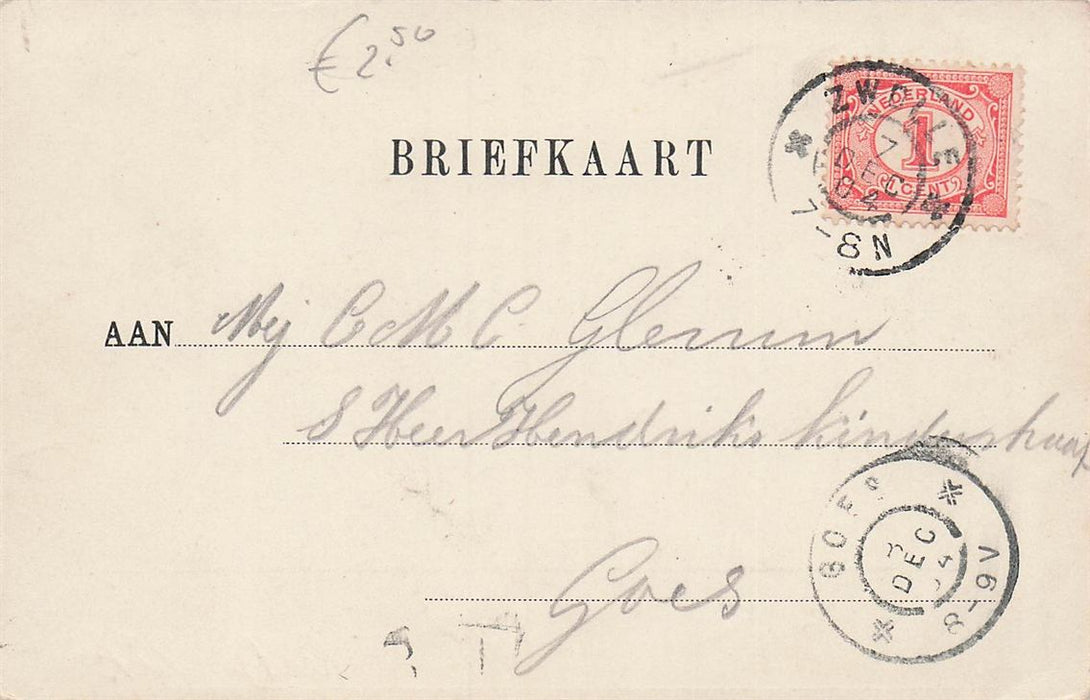 € 2.50
BRIEFKAART
NEDERLAND
1
CENT
ZWOLLE
7 DEC 04
7-8N
AAN Mej C M C. Glerum
S Heer Hendriks kinderskaap
Goes
GOES
DEC 04
8-9V